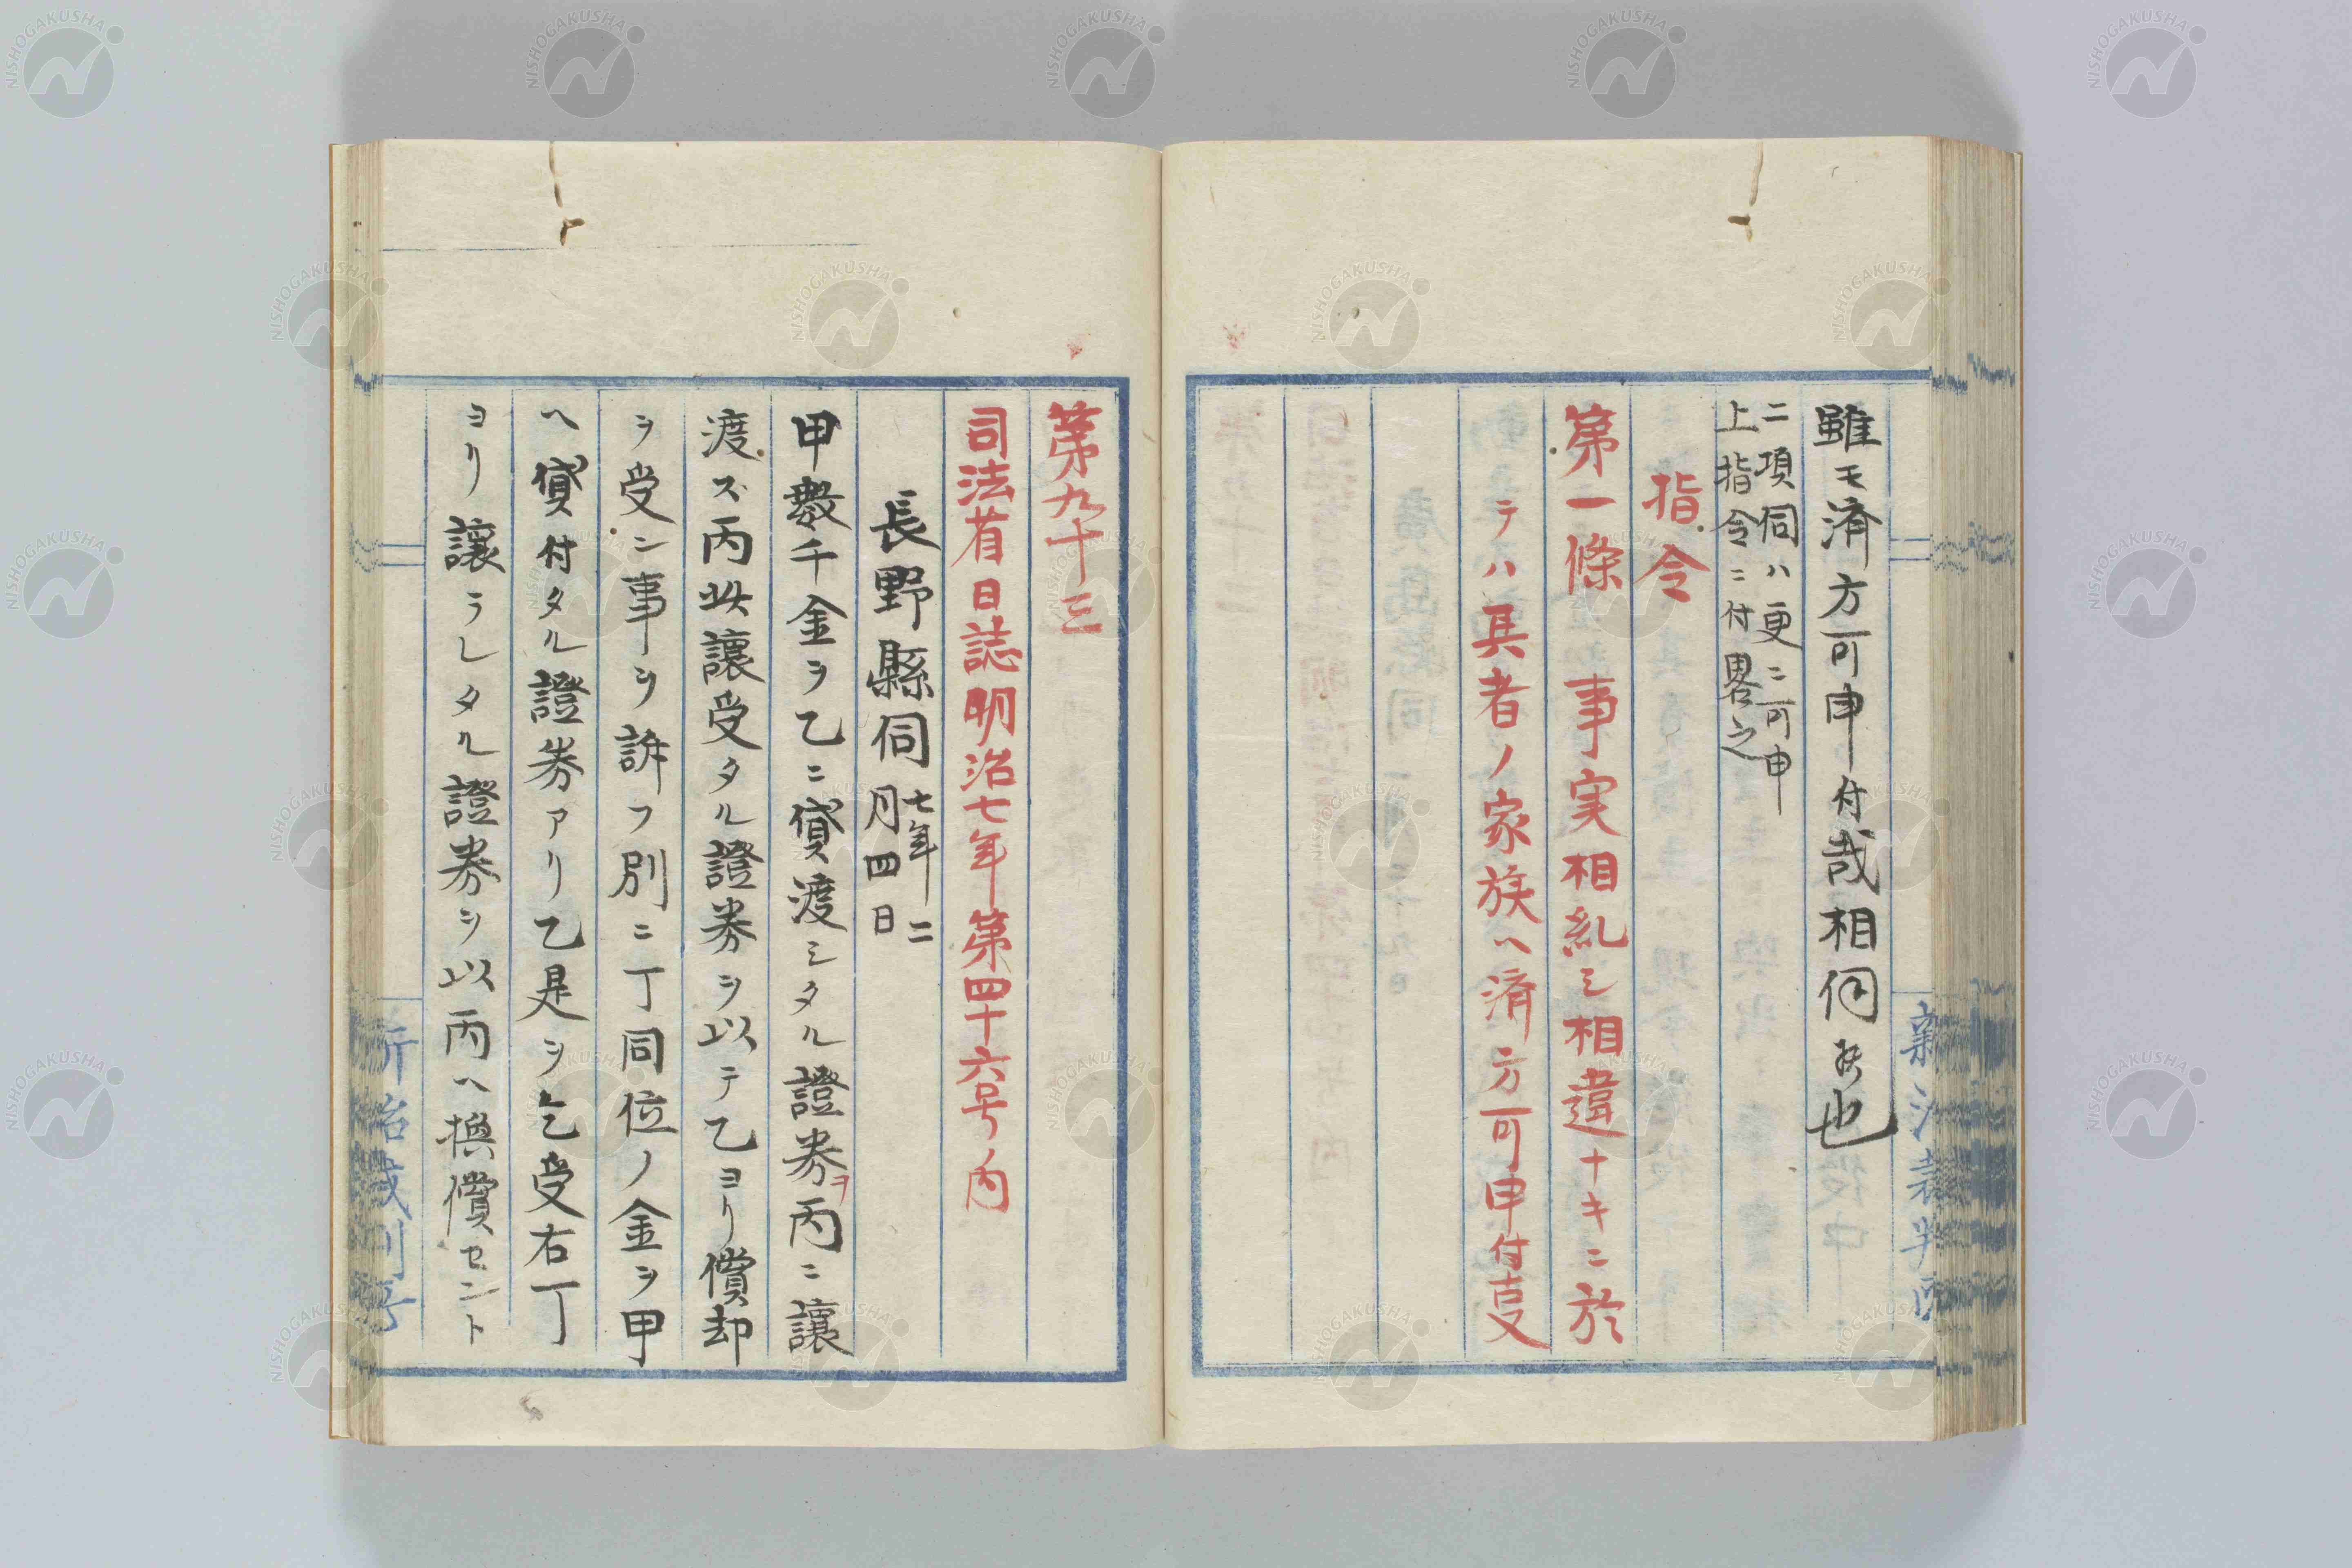 雖モ済方可申付哉相伺候也
二項伺ハ更ニ可申
上指令ニ付畧之
指令
第一條事実相糺シ相違ナキニ於
テハ其者ノ家族ヘ済方可申付夏
第九十三
司法省日誌明治七年第四十六号ノ内
長野縣伺七年二
月四日
甲數千金ヲ乙ニ貸渡シタル證券ヲ丙ニ讓
渡ス丙此讓受タル證券ヲ以テ乙ヨリ償却
ヲ受ン事ヲ訴フ別ニ丁同位ノ金ヲ甲
ヘ貸付タル證券アリ乙是ヲ乞受右丁
ヨリ讓ラレタル證券ヲ以丙ヘ換償セント
新治裁判所
NISHOGAKUSHA